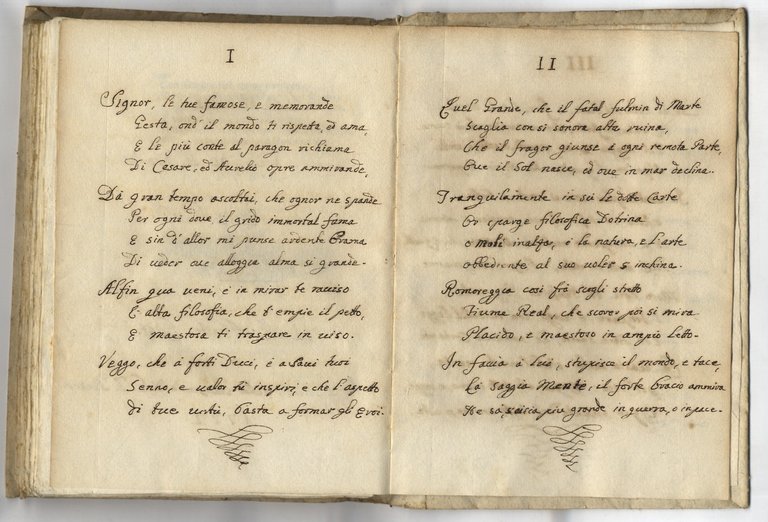 I
Signor, le tue famose, e memorande
Gesta, ond' il mondo ti rispetta, ed ama,
E le più conte al paragon richiama
Di Cesare, ed Aurelio opre ammirande,
Dà gran tempo ascoltai, che ognor ne spande
Per ogni dove il grido immortal fama
E sin d' allor mi punse ardente brama
Di veder ove alloggia alma sì grande.
Alfin qua veni, e in mirar te raviso
L' alta filosofia, che t' empie il petto,
E maestosa ti traspare in viso.
Veggo, che à forti Duci, e à Savi tuoi
Senno, e valor tù inspiri, e che l' aspetto
di tue virtù, basta a formar gli Eroi.
II
Quel Grande, che il fatal fulmin di Marte
Scaglia con sì sonora alta ruina,
Che il fragor giunse à ogni remota Parte,
Ove il Sol nasce, ed ove in mar declina.
Tranquilamente in sù le dotte Carte
Or sparge filosofica Dotrina
o Moli inalza, e la natura, e l' arte
obbediente al suo voler s' inchina.
Romoreggia così frà scogli stretto
Fiume Real, che scorer poi si mira
Placido, e maestoso in ampio Letto.
In facia à lui, stupisce il mondo, e tace,
La saggia Mente, il forte bracio ammira
Ne sà, più grande in guerra, o in pace.